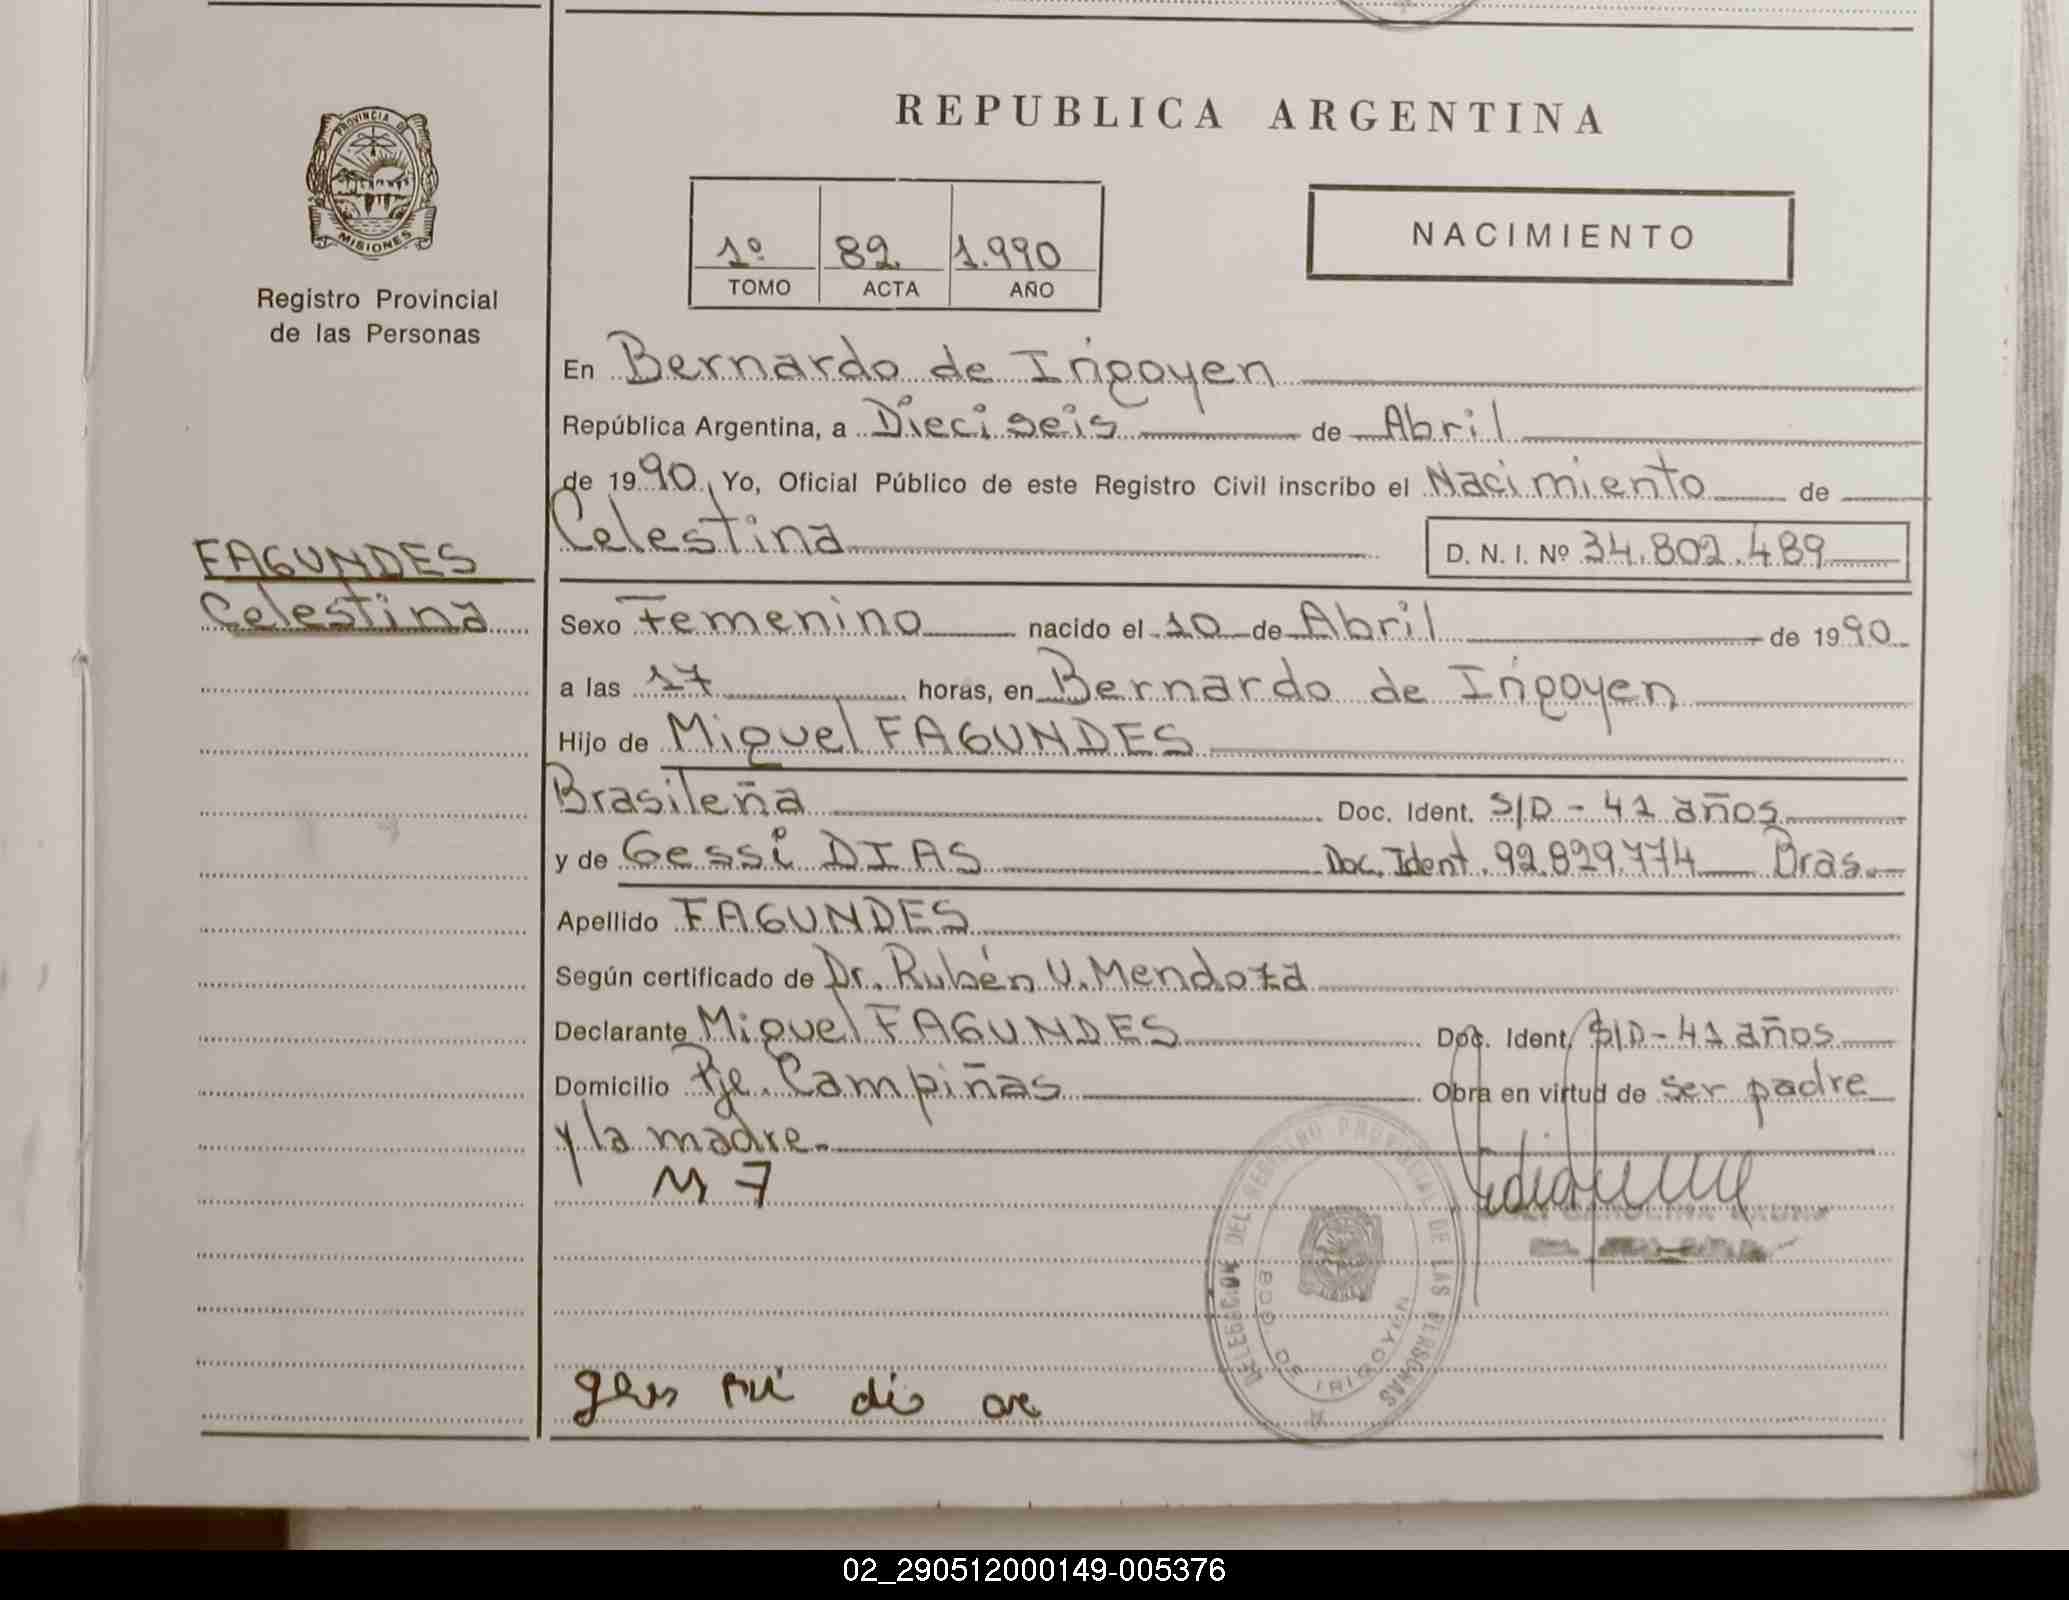 REPUBLICA ARGENTINA
PROVINCIA DE
MISIONES
Registro Provincial
de las Personas
1º 82 1.990
TOMO ACTA AÑO
NACIMIENTO
En Bernardo de Irigoyen
República Argentina, a Dieciseis de Abril
de 1990 Yo, Oficial Público de este Registro Civil inscribo el Nacimiento de
Celestina D. N. I. Nº 34.802.489
FAGUNDES
Celestina
Sexo Femenino nacido el 10 de Abril de 1990
a las 17 horas, en Bernardo de Irigoyen
Hijo de Miguel FAGUNDES
Brasileña Doc. Ident. S/D - 41 años
y de Gessi DIAS Doc. Ident. 92.829.774 Bras.
Apellido FAGUNDES
Según certificado de Dr. Rubén V. Mendoza
Declarante Miguel FAGUNDES Doc. Ident. S/D - 41 años
Domicilio Pje. Campiñas Obra en virtud de ser padre
y la madre.
M 7
DELEGACION DEL REGISTRO PROVINCIAL DE LAS PERSONAS
BDO DE IRIGOYEN
02_290512000149-005376